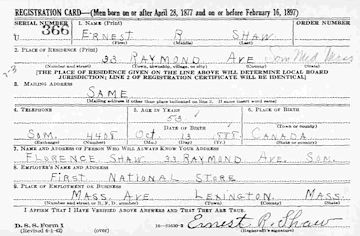 REGISTRATION CARD—(Men born on or after April 28, 1877 and on or before February 16, 1897)
SERIAL NUMBER 1. NAME (Print) ORDER NUMBER
U 366 ERNEST R SHAW
(First) (Middle) (Last)
2. PLACE OF RESIDENCE (Print)
33 RAYMOND AVE Som Mass
(Number and street) (Town, township, village, or city) (County) (State)
[THE PLACE OF RESIDENCE GIVEN ON THE LINE ABOVE WILL DETERMINE LOCAL BOARD
JURISDICTION; LINE 2 OF REGISTRATION CERTIFICATE WILL BE IDENTICAL]
3. MAILING ADDRESS
SAME
[Mailing address if other than place indicated on line 2. If same insert word same]
4. TELEPHONE 5. AGE IN YEARS 6. PLACE OF BIRTH
53
DATE OF BIRTH (Town or county)
SOM. 4408 Oct 13 CANADA
(Exchange) (Number) (Mo.) (Day) (Yr.) (State or country)
7. NAME AND ADDRESS OF PERSON WHO WILL ALWAYS KNOW YOUR ADDRESS
FLORENCE SHAW 33 RAYMOND AVE. SOM.
8. EMPLOYER'S NAME AND ADDRESS
FIRST NATIONAL STORE
9. PLACE OF EMPLOYMENT OR BUSINESS
MASS. AVE LEXINGTON, MASS.
(Number and street or R. F. D. number) (Town) (County) (State)
I AFFIRM THAT I HAVE VERIFIED ABOVE ANSWERS AND THAT THEY ARE TRUE.
D. S. S. Form 1
(Revised 4-1-42) (over) Ernest R. Shaw
(Registrant's signature)